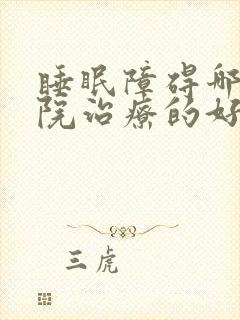 睡眠障碍哪
院治疗的好
三虎